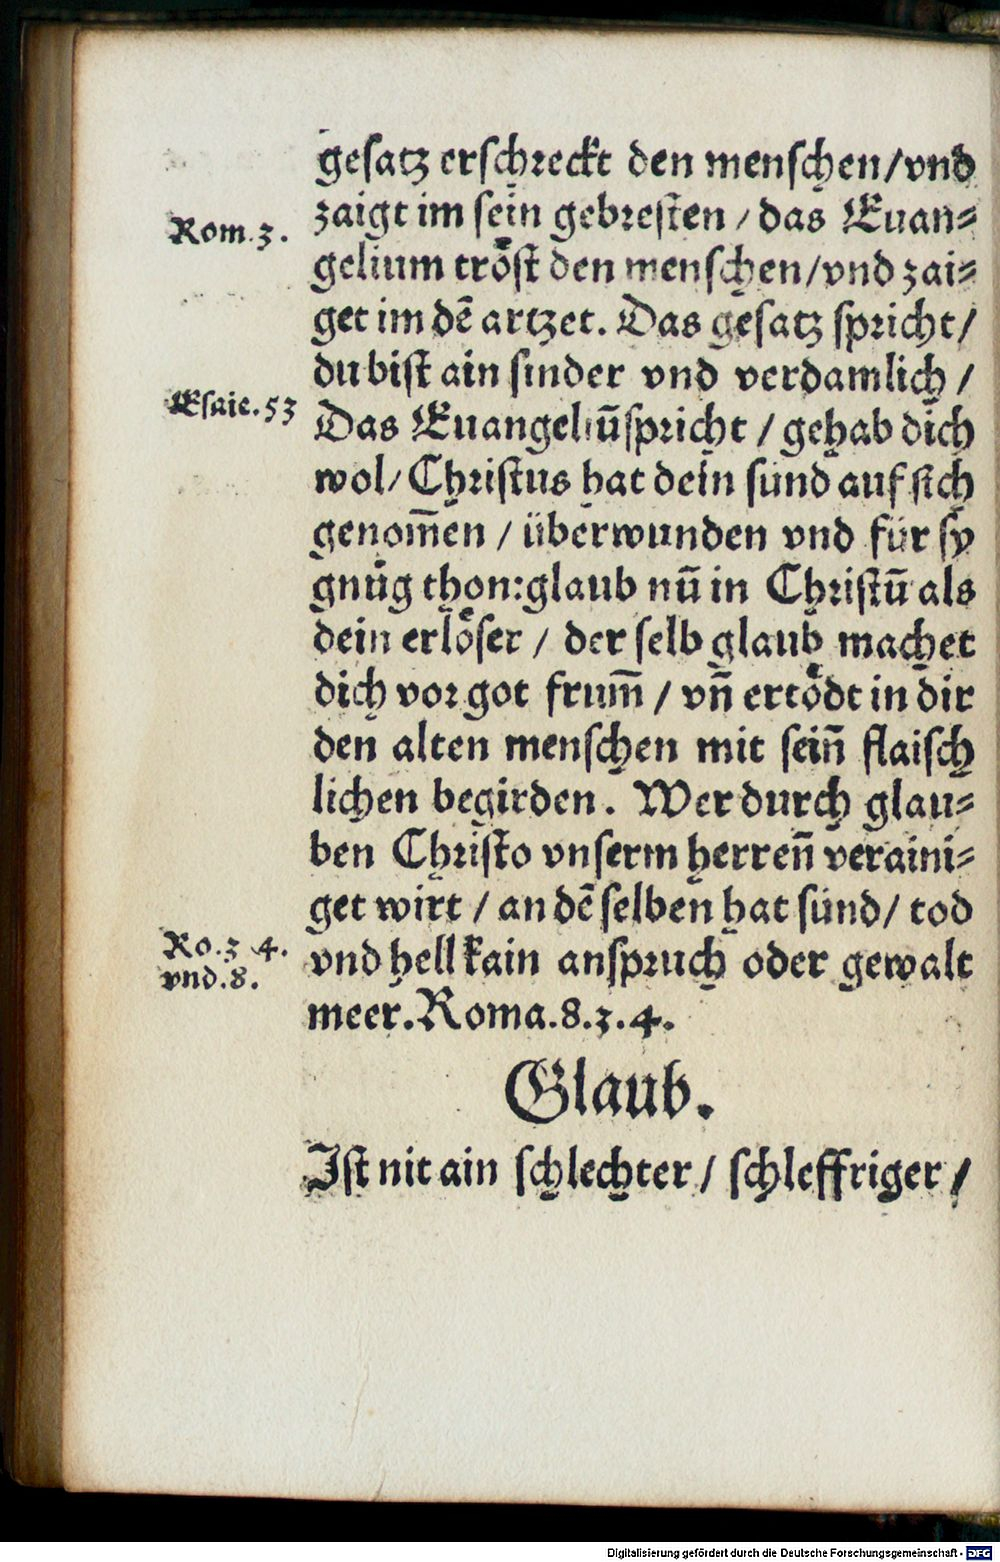 gesatz erschreckt den menschen/vnd
Rom.3.
zaigt im sein gebresten / das Euan⸗
gelium tröst den menschen/vnd zai⸗
get im dē artzet. Das gesatz spricht/
du bist ain sinder vnd verdamlich /
Esaie.53
Das Euangeliū spricht / gehab dich
wol/ Christus hat dein sünd auf sich
genom̄en / überwunden vnd für sy
gnůg thon: glaub nū in Christū als
dein erlöser / der selb glaub machet
dich vor got frum̄ / vn̄ ertödt in dir
den alten menschen mit sein̄ flaisch
lichen begirden. Wer durch glau⸗
ben Christo vnserm herren̄ veraini⸗
get wirt / an dē selben hat sünd/ tod
Ro.3 4.
vnd.8.
vnd hell kain anspruch oder gewalt
meer. Roma.8.3.4.
Glaub.
Ist nit ain schlechter/ schleffriger /
Digitalisierung gefördert durch die Deutsche Forschungsgemeinschaft - DFG